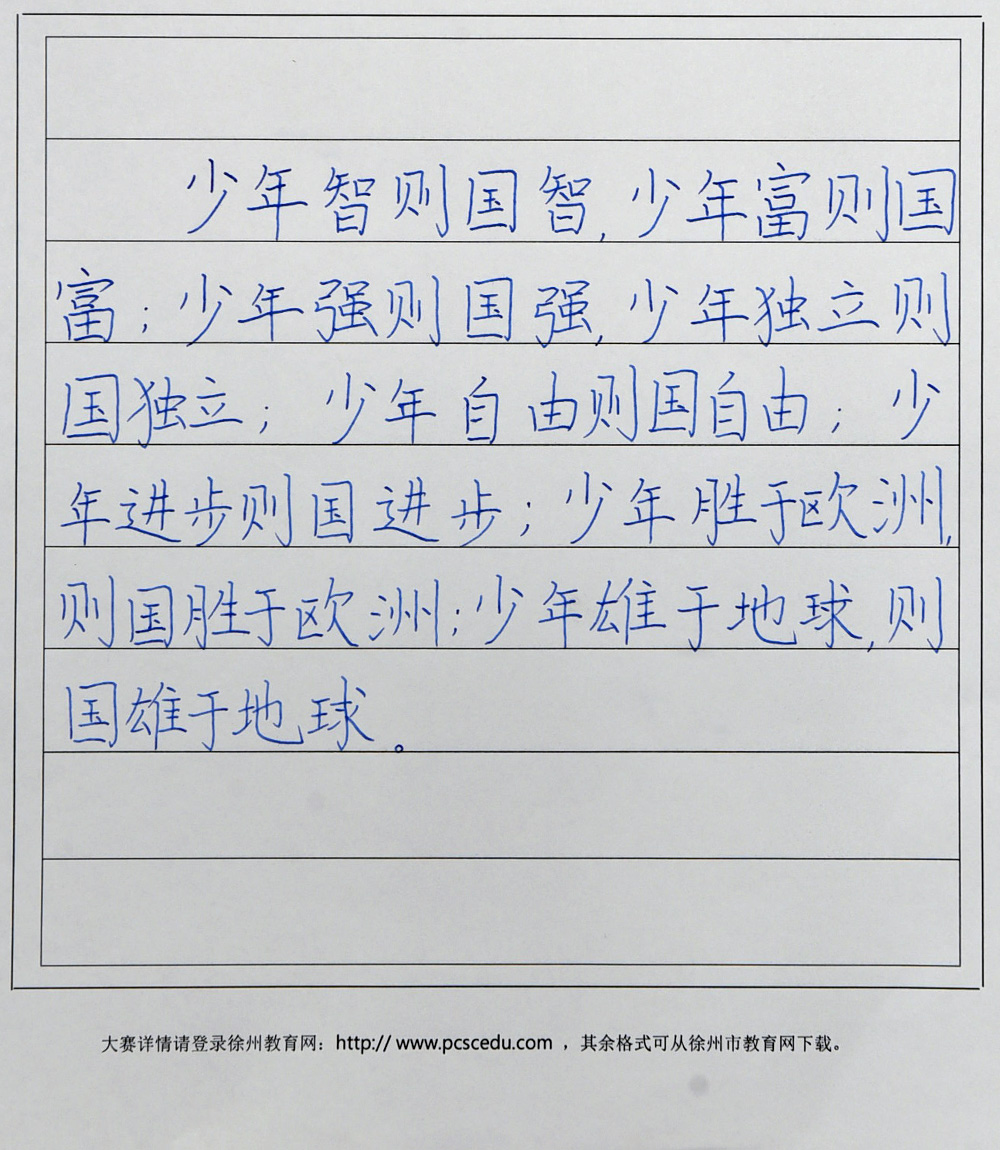 少年智则国智,少年富则国
富；少年强则国强,少年独立则
国独立；少年自由则国自由；少
年进步则国进步；少年胜于欧洲,
则国胜于欧洲；少年雄于地球,则
国雄于地球。
大赛详情请登录徐州教育网：http:// www.pcscedu.com ，其余格式可从徐州市教育网下载。